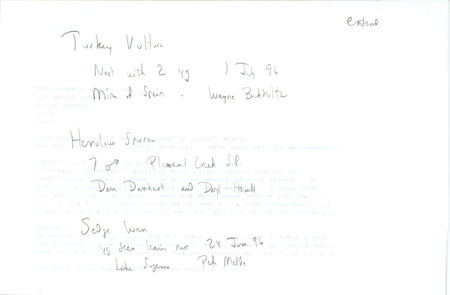 extend
Turkey Vulture
Nest with 2 yg 1 July 96
Mines of Spain - Wayne Buchholtz
Henslow Sparrow
7 ♂ Pleasant Creek S.P.
Dave Dankert and Daryl
Sedge Wren
yg seen leaving nest 24 June 96
Lake Sugema Pete